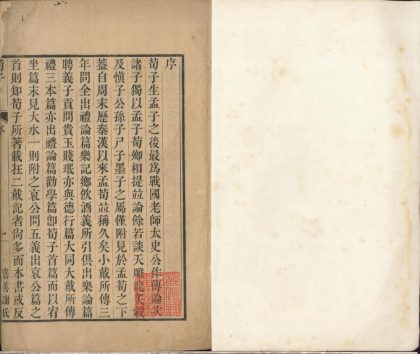 序
荀子生孟子之後最爲戰國老師太史公作傳論次
諸子獨以孟子荀卿相提竝論餘若談天雕龍炙轂
及愼子公孫子尸子墨子之屬僅附見於孟荀之下
葢自周末歷秦漢以來孟荀竝稱久矣小戴所傳三
年問全出禮論篇樂記鄉飲酒義所引俱出樂論篇
聘義子貢問貴玉賤珉亦與德行篇大同大戴所傳
禮三本篇亦出禮論篇勸學篇卽荀子首篇而以宥
坐篇末見大水一則附之哀公問五義出哀公篇之
首則知荀子所著載在二戴記者尚多而本書或反
荀子
序
一
嘉善謝氏